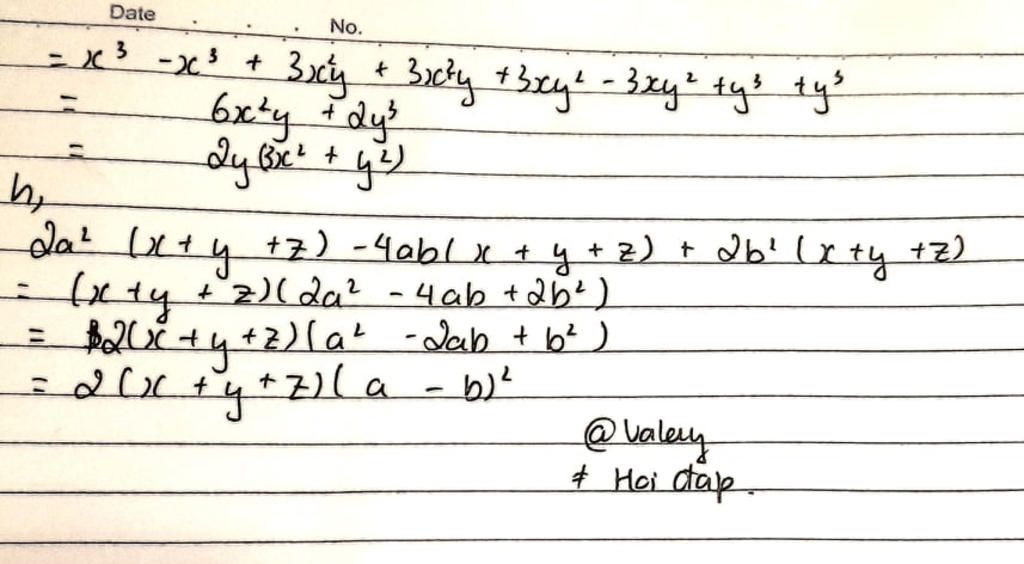 Date . . . No.
= x³ - x³ + 3x²y + 3x²y + 3xy² - 3xy² + y³ + y³
= 6x²y + 2y³
= 2y(3x² + y²)
h,
2a² (x + y + z) - 4ab( x + y + z) + 2b² (x + y + z)
= (x + y + z)(2a² - 4ab + 2b²)
= 2(x + y + z)(a² - 2ab + b²)
= 2(x + y + z)( a - b)²
@Valery
# Hoi dap.